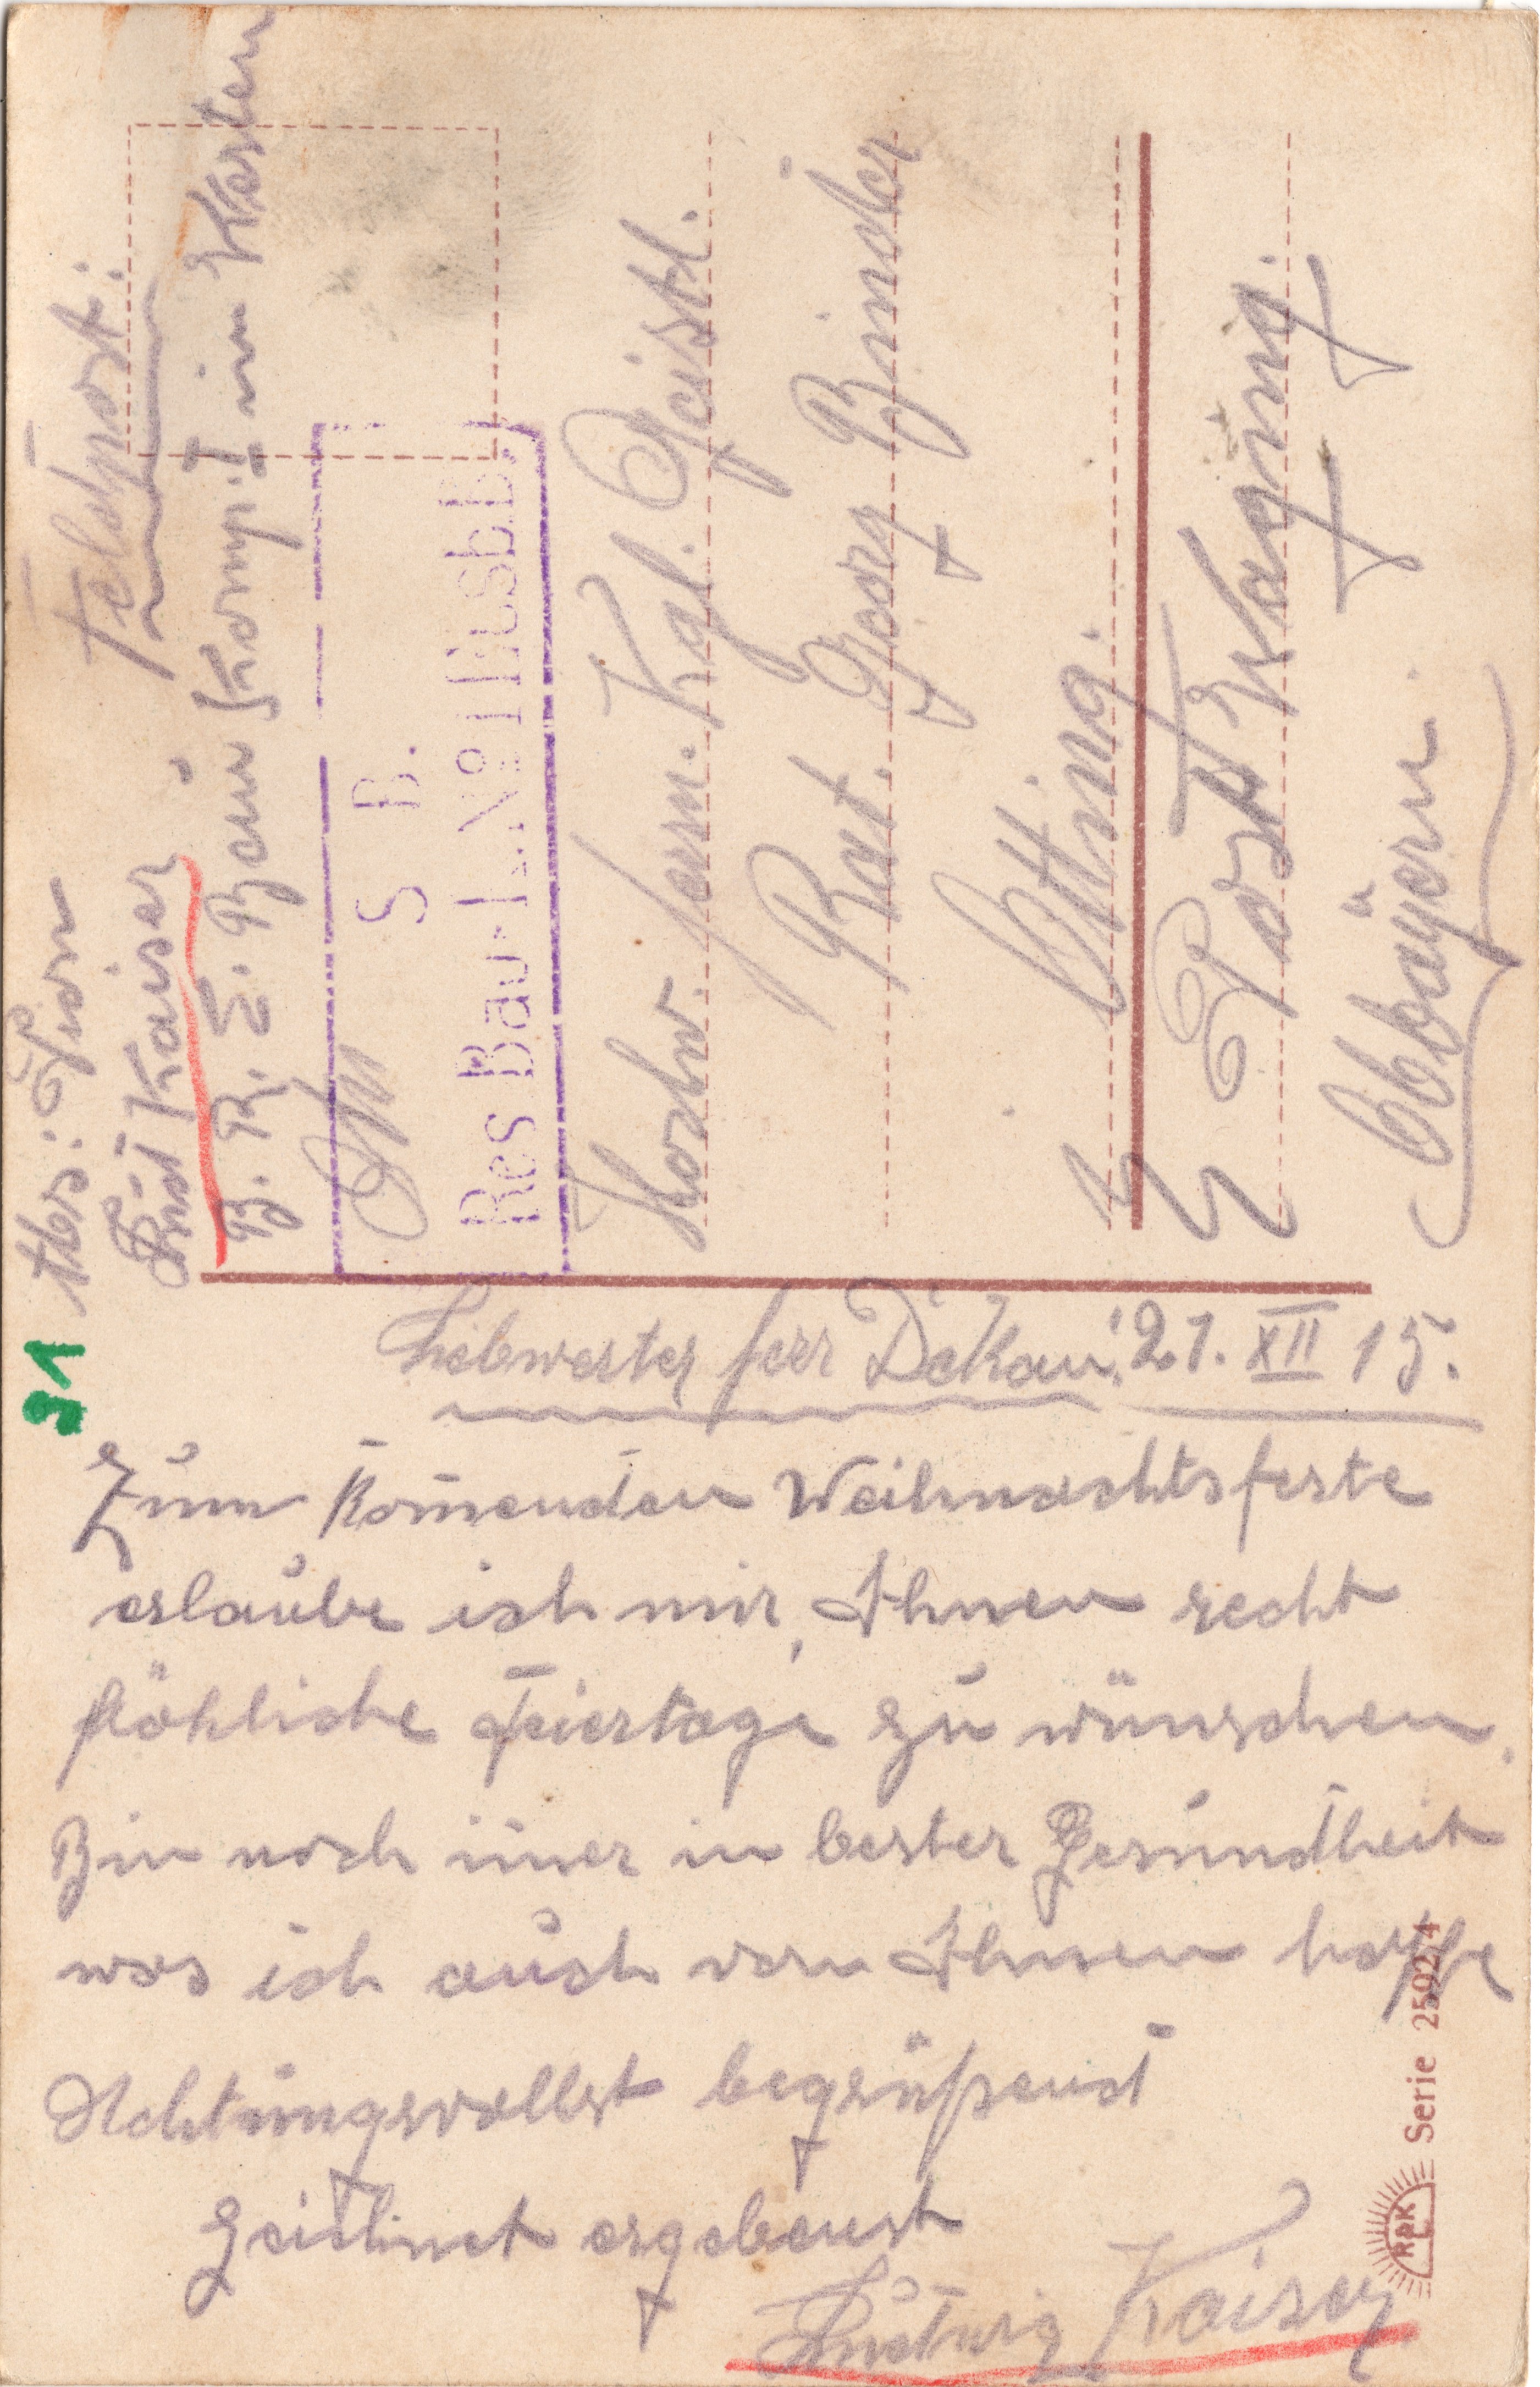 Feldpost.
Abs: Pion
Lud Kaiser
B. R. E. Bau Komp. I im Westen
An
S. B.
Res Bau-L. No 1 Husbb.
Hochw. Herrn. Kgl. Geistl.
Rat. Georg Binder
Otting.
Post Waging.
Obbayern
91
Liebwerter Herr Dekan! 21. XII 15.
Zum kom̄enden Weihnachtsfeste
erlaube ich mir, Ihnen recht
fröhliche Feiertage zu wünschen.
Bin noch im̄er in bester Gesundheit
was ich auch von Ihnen hoffe
Achtungsvollst begrüßend
zeichnet ergebenst
Ludwig Kaiser
RPK
Serie 2592/4